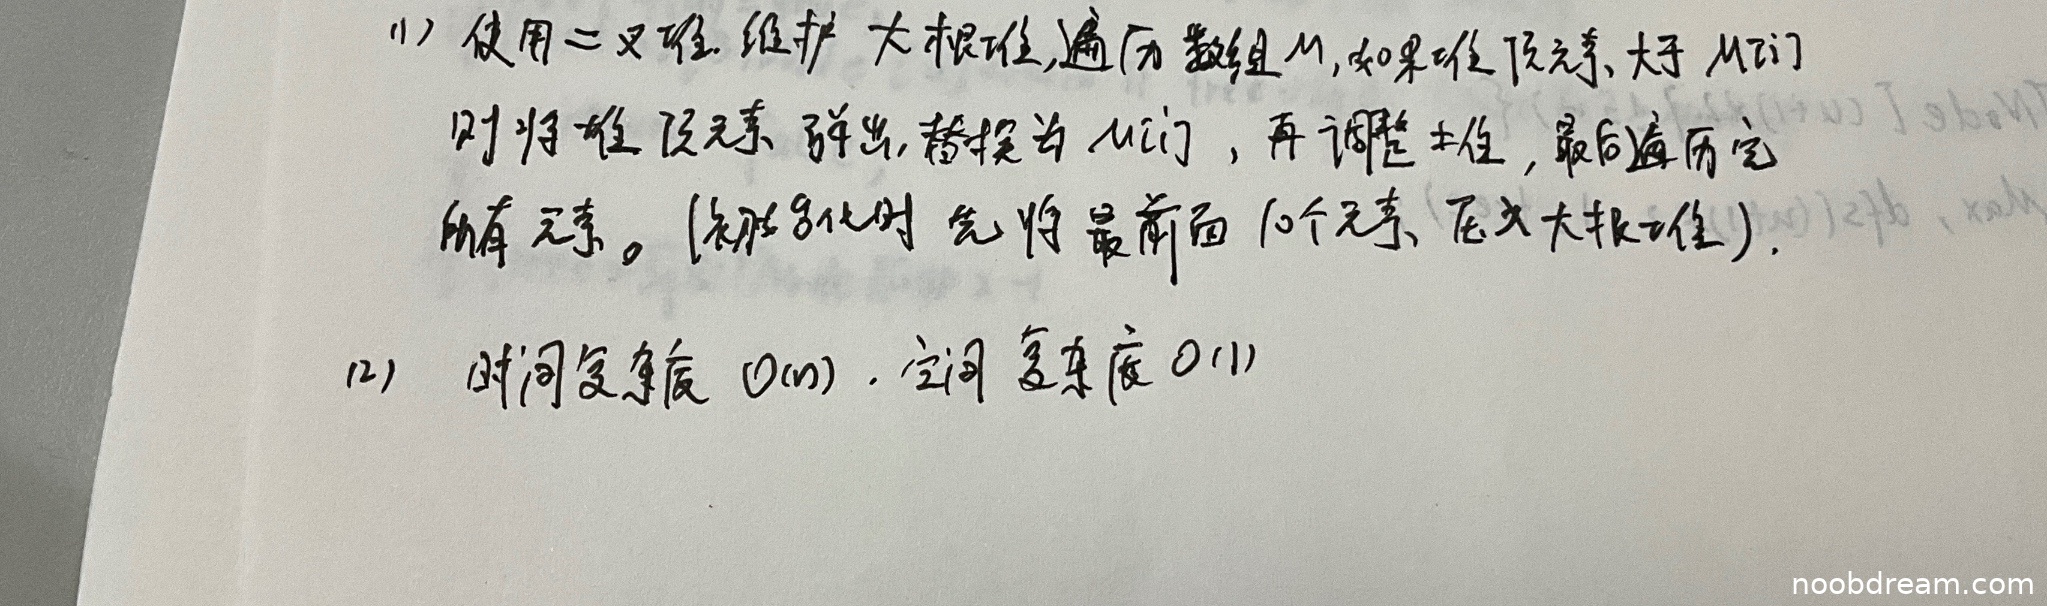 (1) 使用二叉堆.维护 大根堆,遍历数组M,如果堆顶元素、大于 M[i]
时将堆顶元素 弹出,替换为 M[i],再调整堆,最后遍历完
所有元素。(初始化时 先将最前面10个元素、压入大根堆).
(2) 时间复杂度 O(n).空间复杂度 O(1)
noobdream.com